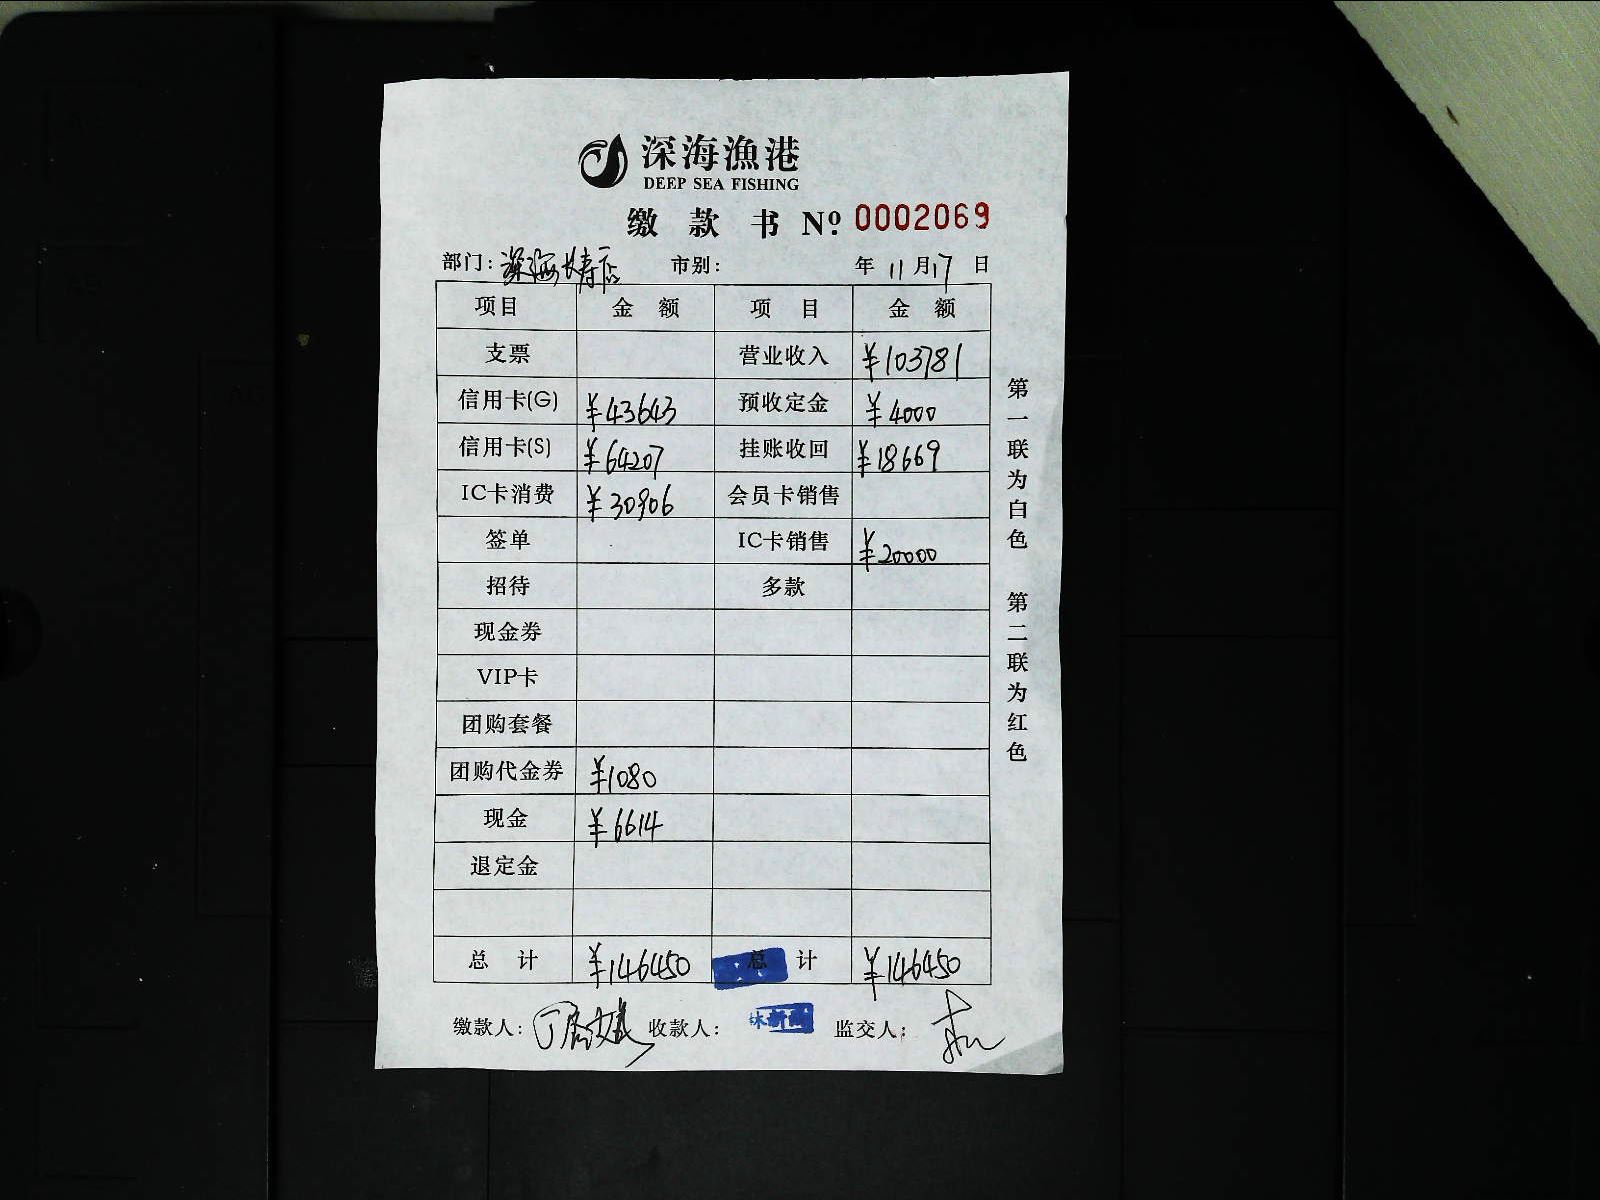 深海漁港
DEEP SEA FISHING
缴款书 Nº: 0002069
部门: 深海长寿店 市别: 年 11 月 17 日
项目 金额 项目 金额
支票 营业收入 ¥103781
信用卡(G) ¥43643 预收定金 ¥4000
信用卡(S) ¥64207 挂账收回 ¥18669
IC卡消费 ¥30906 会员卡销售
签单 IC卡销售 ¥20000
招待 多款
现金券
VIP卡
团购套餐
团购代金券 ¥1080
现金 ¥6614
退定金
总计 ¥146450 总计 ¥146450
缴款人: 收款人: 监交人:
第一联为白色 第二联为红色